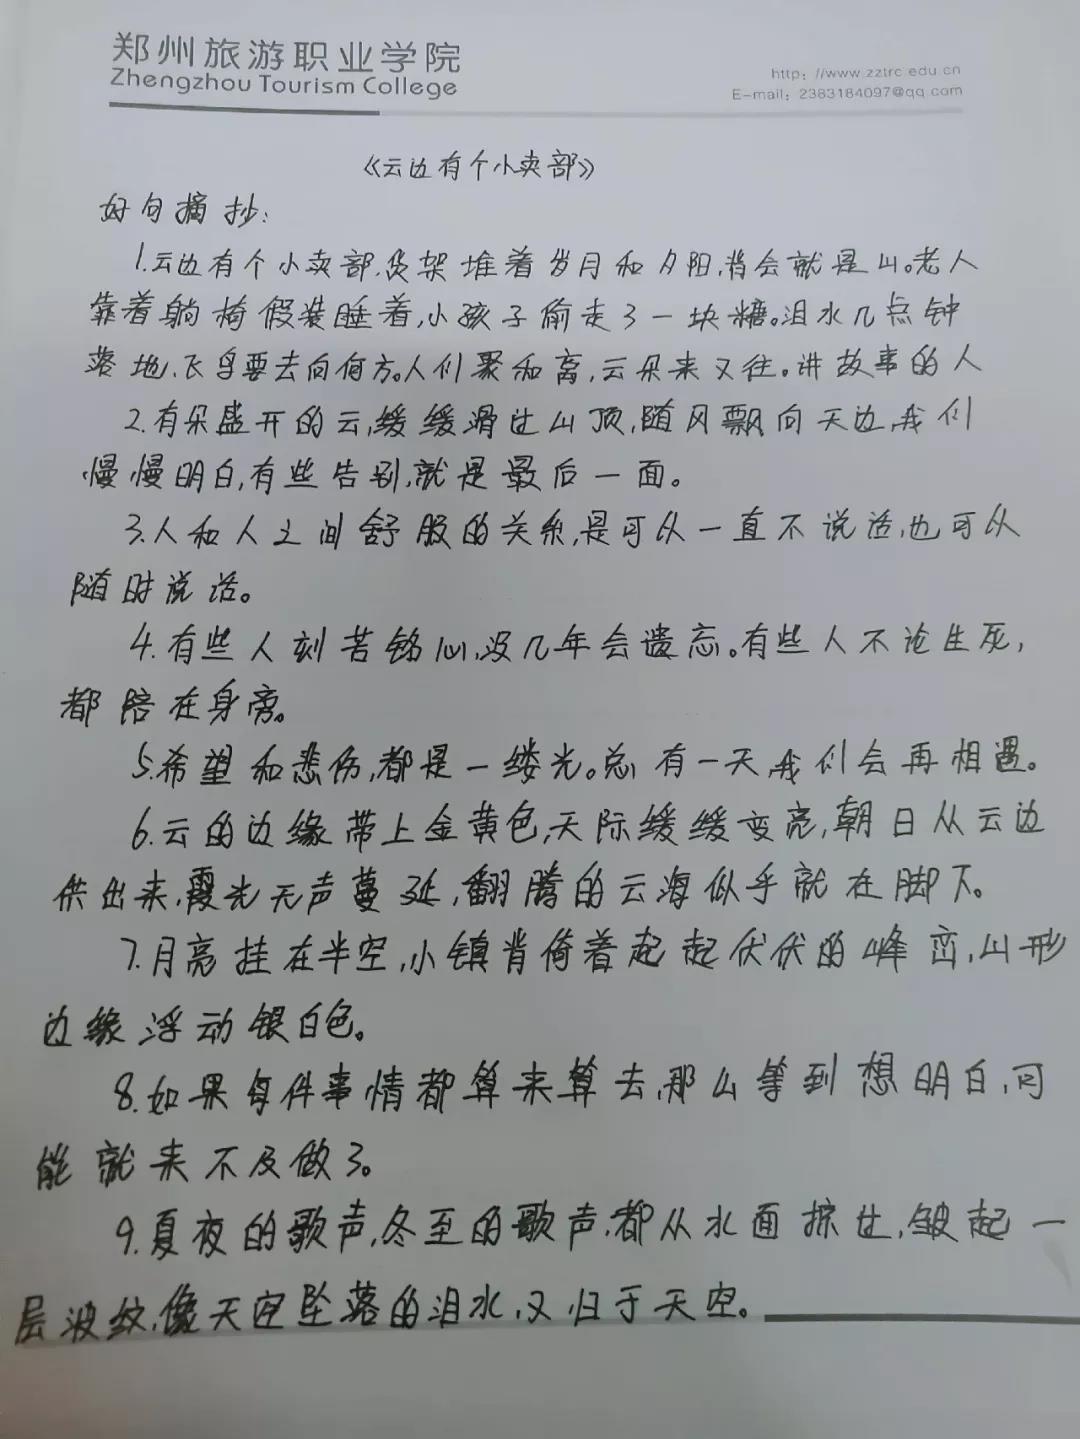 郑州旅游职业学院
Zhengzhou Tourism College
http://www.zztrc.edu.cn
E-mail: 2383184097@qq.com
《云边有个小卖部》
好句摘抄:
1.云边有个小卖部,货架堆着岁月和夕阳,背会就是山。老人
靠着躺椅假装睡着,小孩子偷走了一块糖。泪水几点钟
落地,飞鸟要去向何方。人们聚和离,云朵来又往。讲故事的人
2.有朵盛开的云,缓缓滑过山顶,随风飘向天边,我们
慢慢明白,有些告别,就是最后一面。
3.人和人之间舒服的关系,是可以一直不说话,也可以
随时说话。
4.有些人刻苦铭心,没几年会遗忘。有些人不论生死,
都陪在身旁。
5.希望和悲伤,都是一缕光。总有一天,我们会再相遇。
6.云的边缘带上金黄色,天际缓缓变亮,朝日从云边
供出来,霞光无声蔓延,翻腾的云海似乎就在脚下。
7.月亮挂在半空,小镇背倚着起起伏伏的峰峦,山形
边缘浮动银白色。
8.如果每件事情都算来算去,那么等到想明白,可
能就来不及做了。
9.夏夜的歌声,冬至的歌声,都从水面掠过,皱起一
层波纹,像天空坠落的泪水,又归于天空。